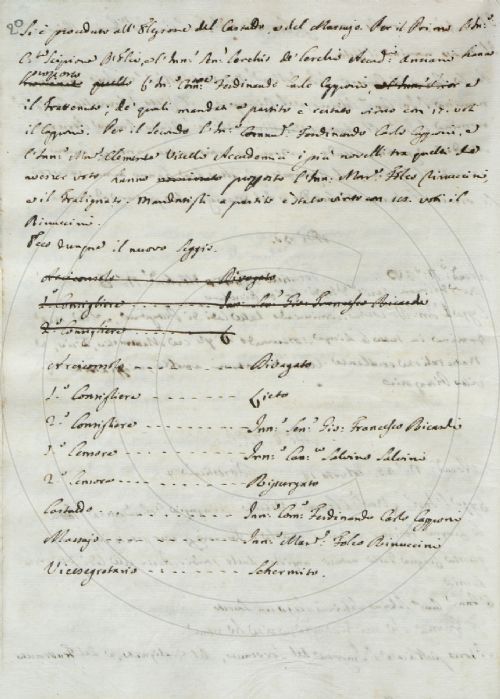 20
Si è proceduto all'elezione del Castaldo, e del Massajo. Per il Primo l'Inn.º
e l'Inn.º Sen.º Cerchio de' Cerchi Accad.ⁱ anziani hanno
proposto
nominato quello l'Inn.º Com.re Ferdinando Carlo Capponi e
il Trattenuto; de' quali mandati a partito è restato vinto con voti
il Capponi. Per il Secondo l'Inn.º Comm.º Ferdinando Carlo Capponi, e
l'Inn.º Mar.º Clemente Vitelli Accademici i più novelli tra quelli che
voto hanno nominato proposto l'Inn.º Mar.º Folco Rinuccini,
e il Tralignato. Mandatisi a partito è stato vinto con voti il
Rinuccini.
Ecco dunque il nuovo Seggio.
Arciconsolo Rivagato
1.º Consigliere Inn.º Sen.º Gio: Francesco Ricardi
2.º Consigliere
Arciconsolo - - - - - - - Rivagato
1.º Consigliere - - - - - - - Lieto
2.º Consigliere - - - - - - - Inn.º Sen.º Gio: Francesco Ricardi
1.º Censore - - - - - - - Inn.º Can.co Salvino Salvini
2.º Censore - - - - - - - Ripurgato
Castaldo - - - - - - - Inn.º Com.º Ferdinando Carlo Capponi
Massajo - - - - - - - Inn.º Mar.º Folco Rinuccini
Vicesegretario - - - - - - - Schermito.